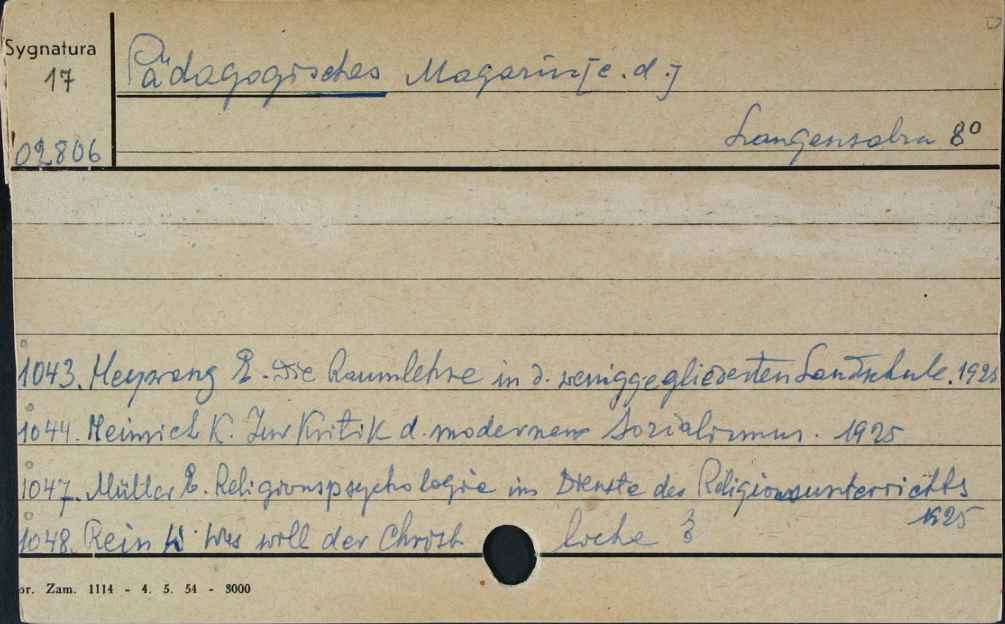 Sygnatura
17
02806
Pädagogisches Magazin [c.d.]
Langensalza 8°
1043. Heywang E. Die Raumlehre in d. weniggegliederten Landschule. 1925
1044. Heinrich K. Zur Kritik d. modernen Sozialismus. 1925
1047. Müller E. Religionspsychologie im Dienste des Religionsunterrichts
1925
1048. Rein W. Was will der Christ liche
or. Zam. 1114 - 4. 5. 54 - 3000